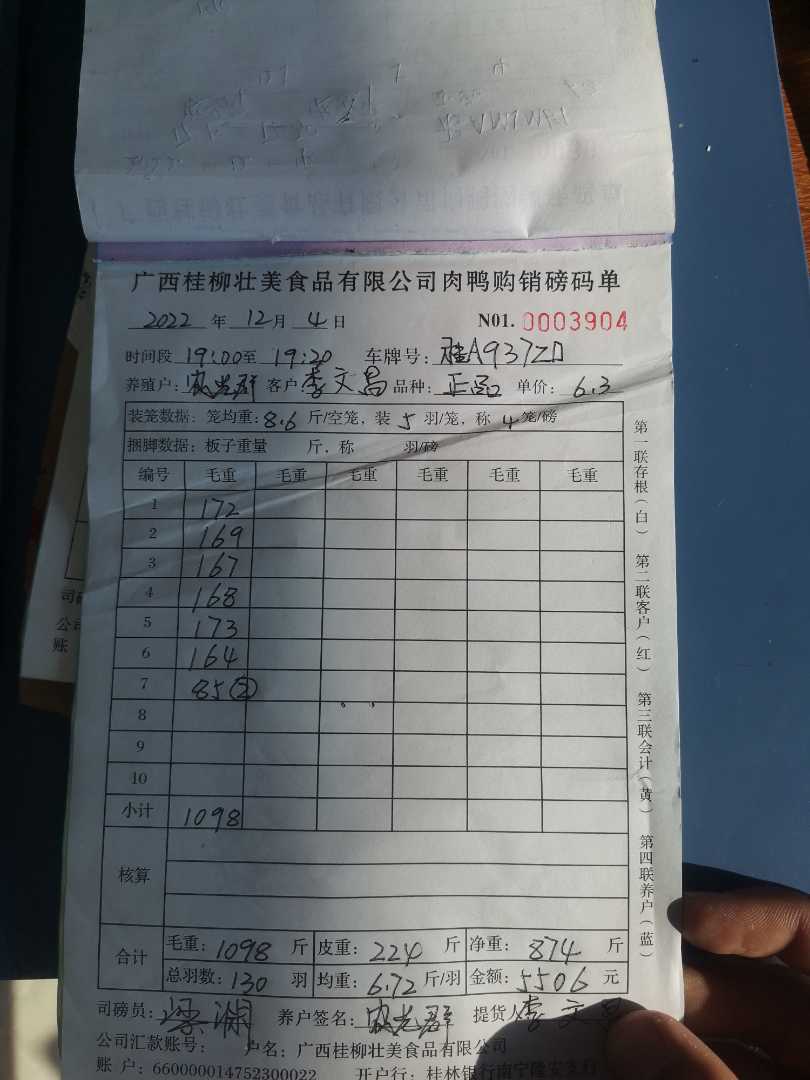 广西桂柳壮美食品有限公司肉鸭购销磅码单
2022 年 12 月 4 日 N01. 0003904
时间段 19:00 至 19:20 车牌号: 桂A937ZD
养殖户: 客户: 李文昌 品种: 正品 单价: 6.3
装笼数据: 笼均重: 8.6 斤/空笼, 装 5 羽/笼, 称 4 笼/磅
捆脚数据: 板子重量 斤, 称 羽/磅
编号 毛重 毛重 毛重 毛重 毛重 毛重
1 172
2 169
3 167
4 168
5 173
6 164
7 85②
8
9
10
小计 1098
核算
合计 毛重: 1098 斤 皮重: 224 斤 净重: 874 斤
总羽数: 130 羽 均重: 6.72 斤/羽 金额: 5506 元
司磅员: 梁渊 养户签名: 提货人 李文昌
公司汇款账号: 户名: 广西桂柳壮美食品有限公司
账 户: 660000014752300022 开户行: 桂林银行南宁隆安支行
第一联存根(白) 第二联客户(红) 第三联会计(黄) 第四联养户(蓝)